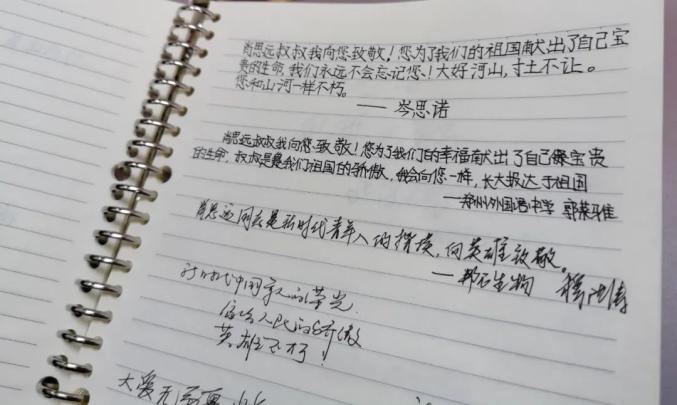 肖思远叔叔我向您致敬！您为了我们的祖国献出了自己宝
贵的生命，我们永远不会忘记您！大好河山，寸土不让。
您和山河一样不朽。
——岑思诺
肖思远叔叔我向您致敬！您为了我们的幸福献出了自己宝贵
的生命，叔叔是我们祖国的骄傲，我会向您一样，长大报达于祖国
——郑州外国语中学
肖思远同志是新时代青年人的楷模，向英雄致敬。
生物
新时代中国军人的荣光
人民的骄傲
英雄不朽！
大爱无疆